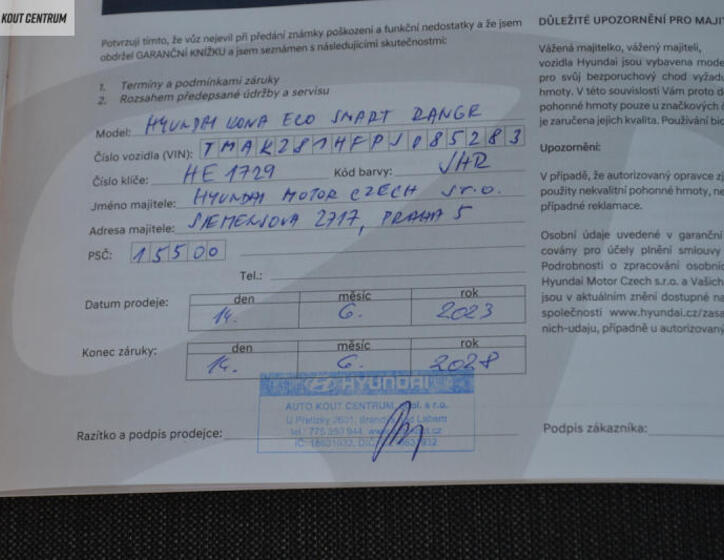 KOUT CENTRUM
Potvrzuji tímto, že vůz nejevil při předání známky poškození a funkční nedostatky a že jsem
obdržel GARANČNÍ KNÍŽKU a jsem seznámen s následujícími skutečnostmi:
1. Termíny a podmínkami záruky
2. Rozsahem předepsané údržby a servisu
Model: HYUNDAI KONA ECO SMART RANGE
Číslo vozidla (VIN): TMAK281HFPJ085283
Číslo klíče: HE 1729 Kód barvy: JHR
Jméno majitele: HYUNDAI MOTOR CZECH s.r.o.
Adresa majitele: SIEMENSOVA 2717, PRAHA 5
PSČ: 15500
Tel.:
Datum prodeje: den měsíc rok
14. 6. 2023
Konec záruky: den měsíc rok
14. 6. 2028
HYUNDAI
AUTO KOUT CENTRUM, s.r.o.
U Přelízky
tel.: 775
Razítko a podpis prodejce:
DŮLEŽITÉ UPOZORNĚNÍ PRO MAJI
Vážená majitelko, vážený majiteli,
vozidla Hyundai jsou vybavena mode
pro svůj bezporuchový chod vyžadu
hmoty. V této souvislosti Vám proto d
pohonné hmoty pouze u značkových
je zaručena jejich kvalita. Používání bio
Upozornění:
V případě, že autorizovaný opravce zj
použity nekvalitní pohonné hmoty, ne
případné reklamace.
Osobní údaje uvedené v garanční
covány pro účely plnění smlouvy
Podrobnosti o zpracování osobníc
Hyundai Motor Czech s.r.o. a Vašich
jsou v aktuálním znění dostupné na
společnosti www.hyundai.cz/zasa
nich-udaju, případně u autorizovaný
Podpis zákazníka: